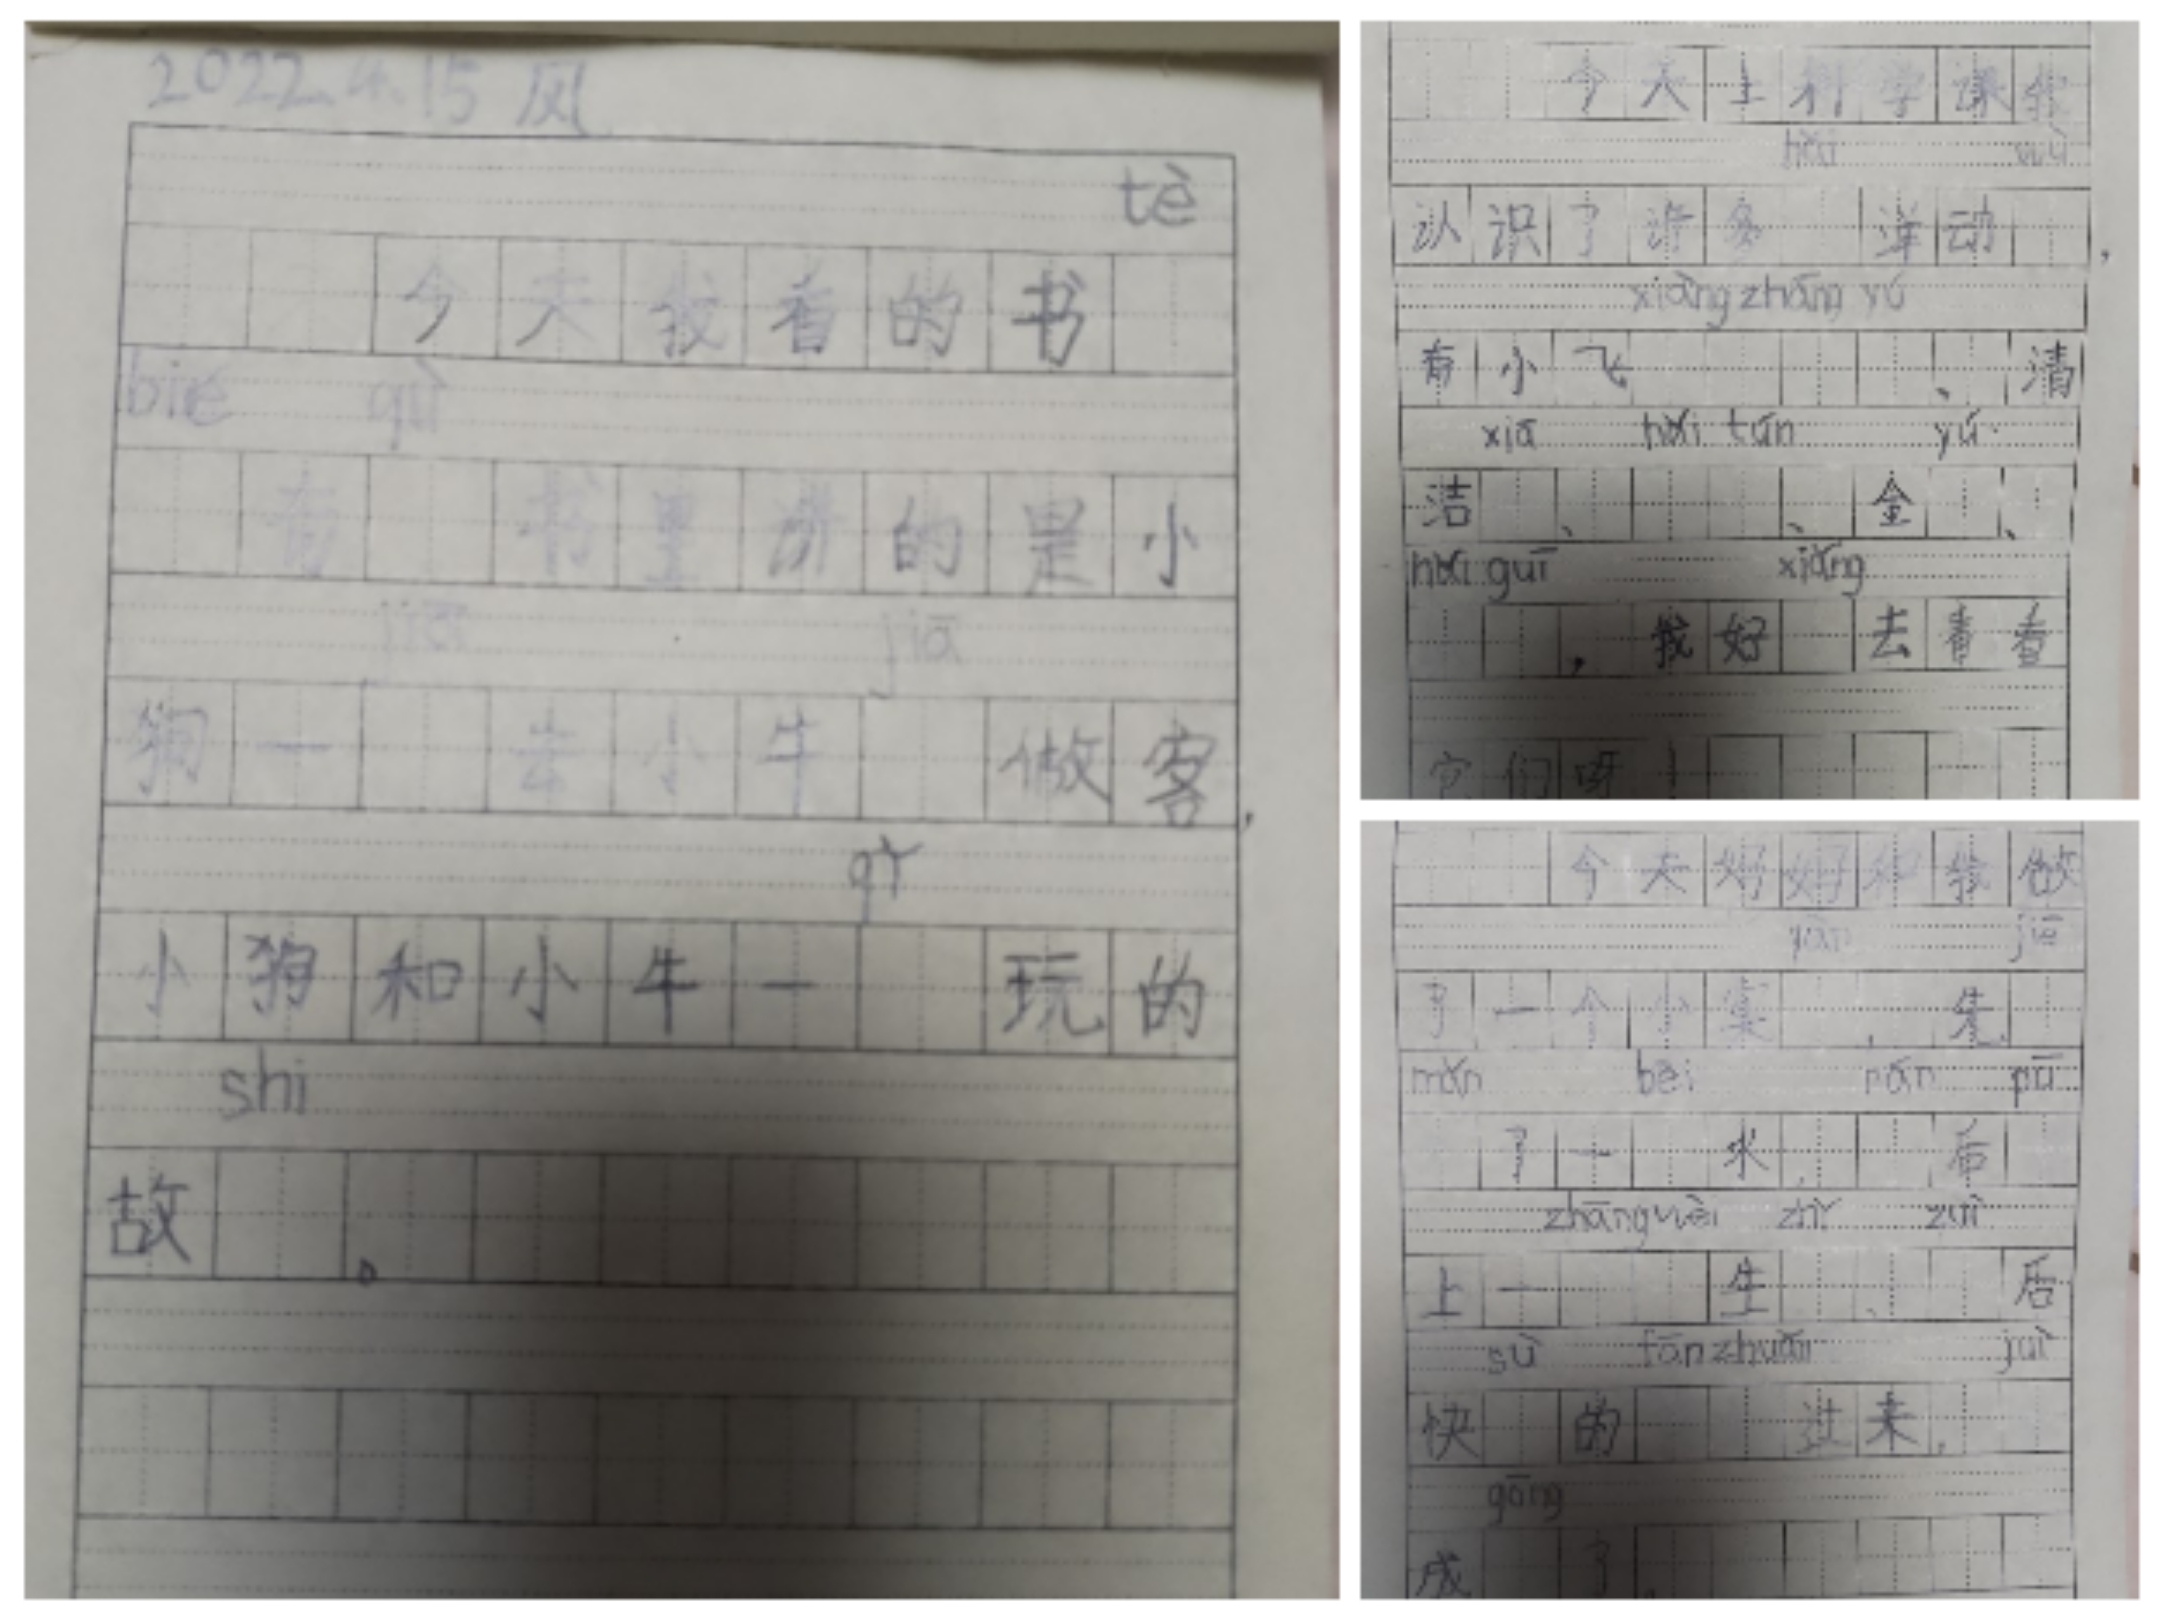 2022.4.15 风
tè
今天我看的书
bié qù
有 书里讲的是小
jiā jiā
狗一 去小牛 做客，
qǐ
小狗和小牛一 玩的
shi
故 。
今天上科学课我
hǎi wù
认识了许多 洋动 ，
xiàng zhāng yú
有小飞 、清
xiā hǎi tún yú
洁 、 、金 、
hǎi guī xiǎng
，我好 去看看
它们呀！
今天妈妈和我做
yàn jiē
了一个小实 ，先
mǎn bēi rán pū
了一 水， 后
zhāng wèi zhǐ zuì
上一 生 、 后
sù fān zhuǎn juì
快 的 过来，
gōng
成 了。